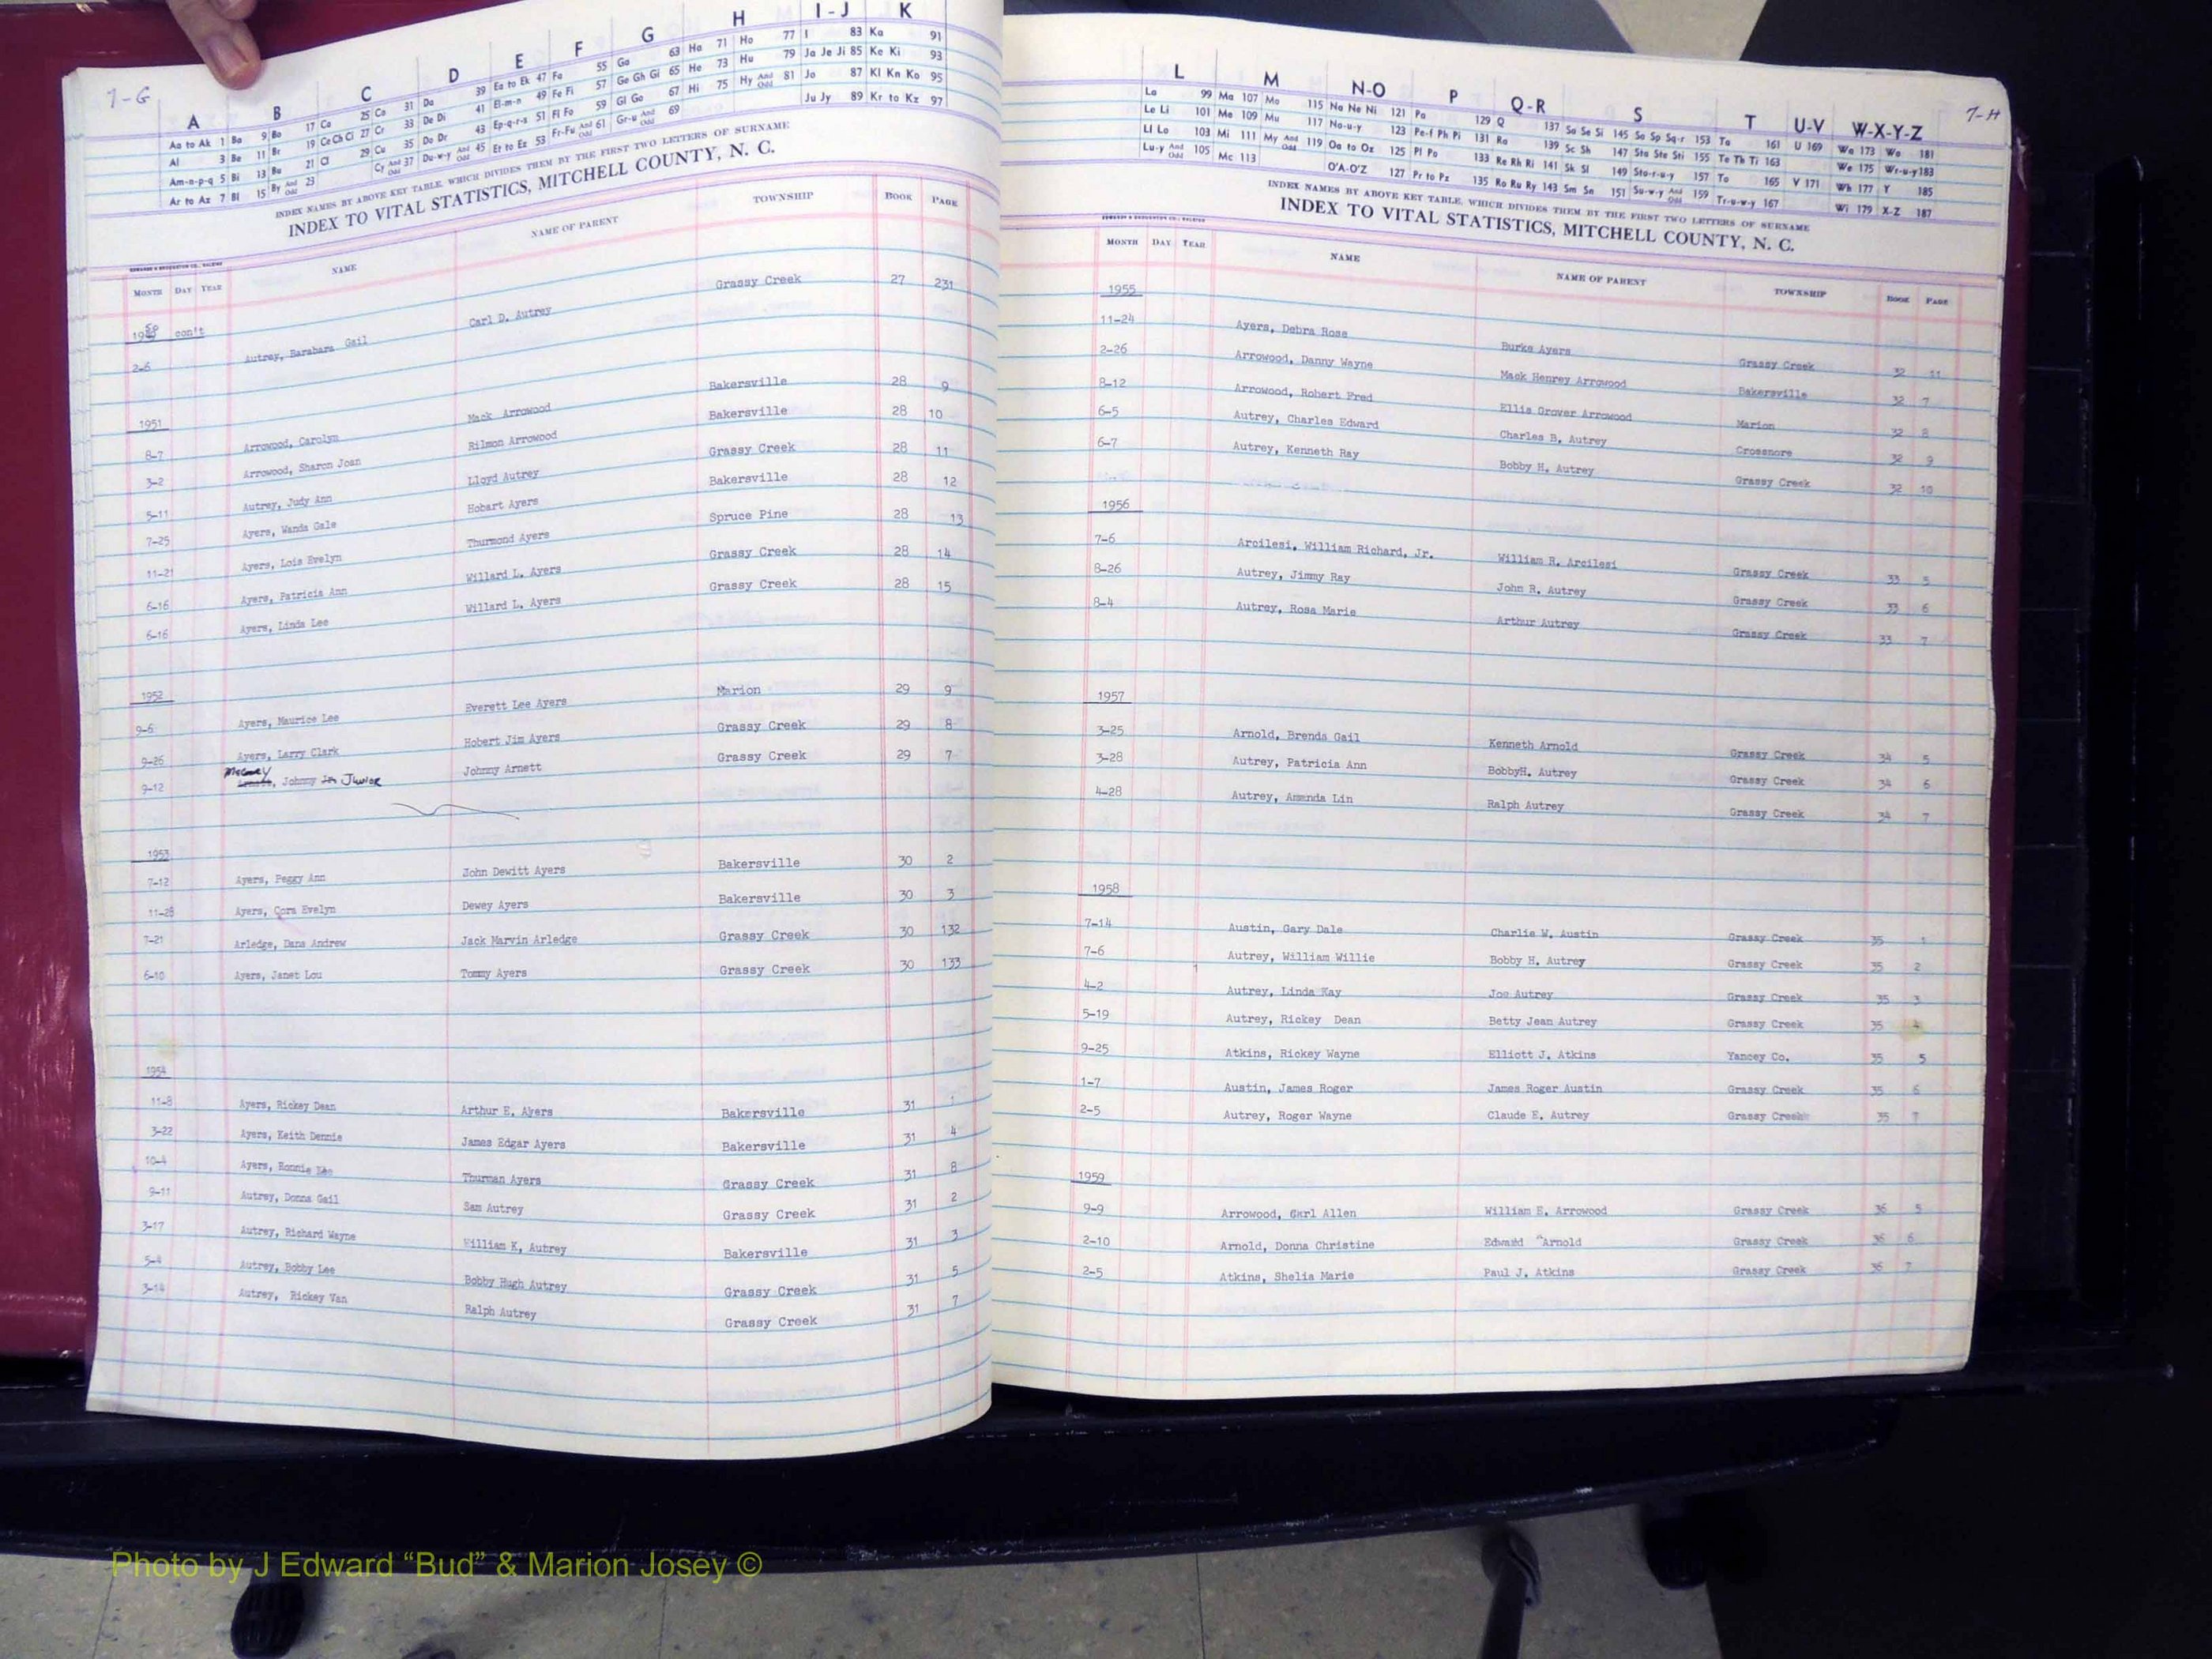 7-G
A B C D E F G H I-J K
Aa to Ak 1 Ba 9 Bo 17 Ca 25 Co 31 Da 39 Ea to Ek 47 Fa 55 Ga 63 Ha 71 Ho 77 I 83 Ka 91
Al 3 Be 11 Br 19 Ce Ch Ci 27 Cr 33 De Di 41 El-m-n 49 Fe Fi 57 Ge Gh Gi 65 He 73 Hu 79 Ja Je Ji 85 Ke Ki 93
Am-n-p-q 5 Bi 13 Bu 21 Cl 29 Cu 35 Do Dr 43 Ep-q-r-s 51 Fl Fo 59 Gl Go 67 Hi 75 Hy And Odd 81 Jo 87 Kl Kn Ko 95
Ar to Az 7 Bl 15 By And Odd 23 Cy And Odd 37 Du-w-y And Odd 45 Et to Ez 53 Fr-Fu And Odd 61 Gr-u And Odd 69 Ju Jy 89 Kr to Kz 97
INDEX NAMES BY ABOVE KEY TABLE, WHICH DIVIDES THEM BY THE FIRST TWO LETTERS OF SURNAME
INDEX TO VITAL STATISTICS, MITCHELL COUNTY, N. C.
MONTH DAY YEAR NAME NAME OF PARENT TOWNSHIP BOOK PAGE
1950 con't
2-6 Autrey, Barabara Gail Carl D. Autrey Grassy Creek 27 231
1951
8-7 Arrowood, Carolyn Mack Arrowood Bakersville 28 9
3-2 Arrowood, Sharon Joan Rilmon Arrowood Bakersville 28 10
5-11 Autrey, Judy Ann Lloyd Autrey Grassy Creek 28 11
7-25 Ayers, Wanda Gale Hobart Ayers Bakersville 28 12
11-21 Ayers, Lois Evelyn Thurmond Ayers Spruce Pine 28 13
6-16 Ayers, Patricia Ann Willard L. Ayers Grassy Creek 28 14
6-16 Ayers, Linda Lee Willard L. Ayers Grassy Creek 28 15
1952
9-6 Ayers, Maurice Lee Everett Lee Ayers Marion 29 9
9-26 Ayers, Larry Clark Hobert Jim Ayers Grassy Creek 29 8
9-12 , Johnny Junior Johnny Arnett Grassy Creek 29 7
1953
7-12 Ayers, Peggy Ann John Dewitt Ayers Bakersville 30 2
11-28 Ayers, Cora Evelyn Dewey Ayers Bakersville 30 3
7-21 Arledge, Dana Andrew Jack Marvin Arledge Grassy Creek 30 132
6-10 Ayers, Janet Lou Tommy Ayers Grassy Creek 30 133
1954
11-8 Ayers, Rickey Dean Arthur E. Ayers Bakersville 31 1
3-22 Ayers, Keith Dennis James Edgar Ayers Bakersville 31 4
10-4 Ayers, Ronnie Lee Thurman Ayers Grassy Creek 31 8
9-11 Autrey, Donna Gail Sam Autrey Grassy Creek 31 2
3-17 Autrey, Richard Wayne William K, Autrey Bakersville 31 3
5-4 Autrey, Bobby Lee Bobby Hugh Autrey Grassy Creek 31 5
3-14 Autrey, Rickey Van Ralph Autrey Grassy Creek 31 7
7-H
L M N-O P Q-R S T U-V W-X-Y-Z
La 99 Ma 107 Mo 115 Na Ne Ni 121 Pa 129 Q 137 Sa Se Si 145 So Sp Sq-r 153 Ta 161 U 169 Wa 173 Wo 181
Le Li 101 Me 109 Mu 117 No-u-y 123 Pe-f Ph Pi 131 Ra 139 Sc Sh 147 Sta Ste Sti 155 Te Th Ti 163 We 175 Wr-u-y 183
Ll Lo 103 Mi 111 My And Odd 119 Oa to Oz 125 Pl Po 133 Re Rh Ri 141 Sk Sl 149 Sto-r-u-y 157 To 165 V 171 Wh 177 Y 185
Lu-y And Odd 105 Mc 113 O'A-O'Z 127 Pr to Pz 135 Ro Ru Ry 143 Sm Sn 151 Su-w-y And Odd 159 Tr-u-w-y 167 Wi 179 X-Z 187
INDEX NAMES BY ABOVE KEY TABLE, WHICH DIVIDES THEM BY THE FIRST TWO LETTERS OF SURNAME
INDEX TO VITAL STATISTICS, MITCHELL COUNTY, N. C.
MONTH DAY YEAR NAME NAME OF PARENT TOWNSHIP BOOK PAGE
1955
11-24 Ayers, Debra Rose Burke Ayers Grassy Creek 32 11
2-26 Arrowood, Danny Wayne Mack Henrey Arrowood Bakersville 32 7
8-12 Arrowood, Robert Fred Ellis Grover Arrowood Marion 32 8
6-5 Autrey, Charles Edward Charles B. Autrey Crossnore 32 9
6-7 Autrey, Kenneth Ray Bobby H. Autrey Grassy Creek 32 10
1956
7-6 Arcilesi, William Richard, Jr. William R. Arcilesi Grassy Creek 33 5
8-26 Autrey, Jimmy Ray John R. Autrey Grassy Creek 33 6
8-4 Autrey, Rosa Marie Arthur Autrey Grassy Creek 33 7
1957
3-25 Arnold, Brenda Gail Kenneth Arnold Grassy Creek 34 5
3-28 Autrey, Patricia Ann BobbyH. Autrey Grassy Creek 34 6
4-28 Autrey, Amanda Lin Ralph Autrey Grassy Creek 34 7
1958
7-14 Austin, Gary Dale Charlie W. Austin Grassy Creek 35 1
7-6 Autrey, William Willie Bobby H. Autrey Grassy Creek 35 2
4-2 Autrey, Linda Kay Joe Autrey Grassy Creek 35 3
5-19 Autrey, Rickey Dean Betty Jean Autrey Grassy Creek 35 4
9-25 Atkins, Rickey Wayne Elliott J. Atkins Yancey Co. 35 5
1-7 Austin, James Roger James Roger Austin Grassy Creek 35 6
2-5 Autrey, Roger Wayne Claude E. Autrey Grassy Creek 35 7
1959
9-9 Arrowood, Carl Allen William E. Arrowood Grassy Creek 36 5
2-10 Arnold, Donna Christine Edward Arnold Grassy Creek 36 6
2-5 Atkins, Shelia Marie Paul J. Atkins Grassy Creek 36 7
Photo by J Edward “Bud” & Marion Josey ©